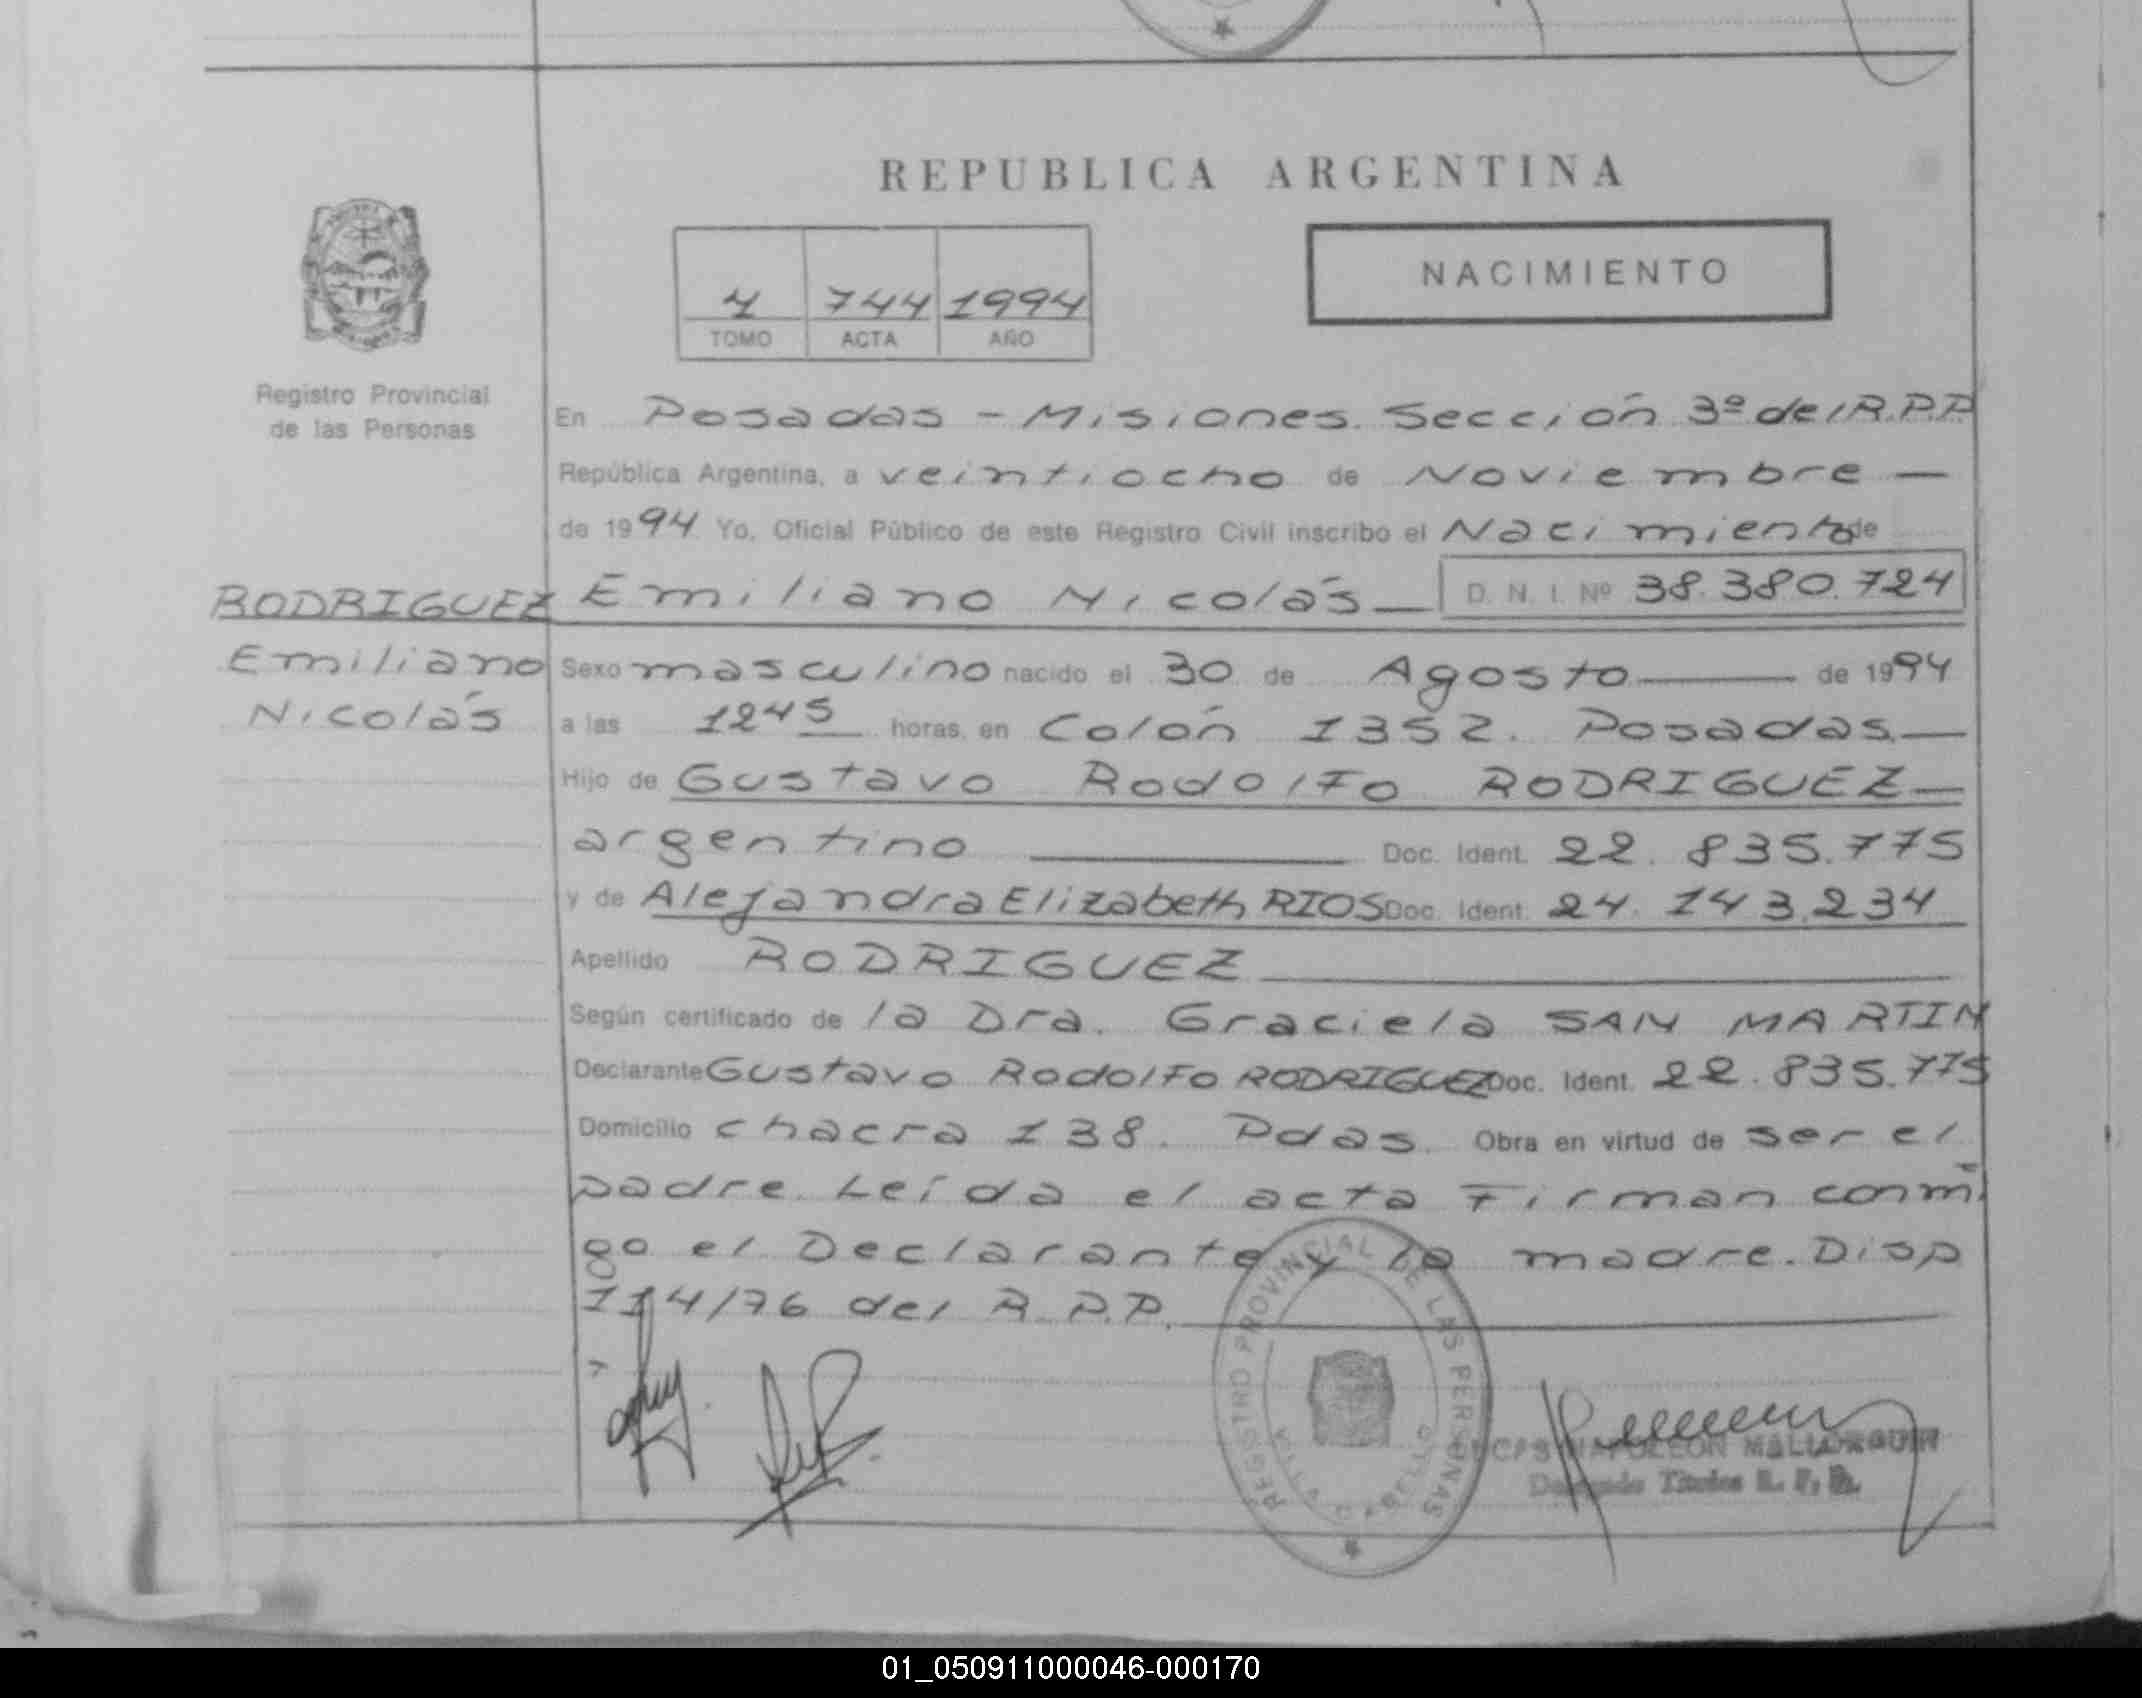 REPUBLICA ARGENTINA
NACIMIENTO
4 744 1994
TOMO ACTA AÑO
Registro Provincial
de las Personas
En Posadas - Misiones. Sección 3º del R.P.P
República Argentina, a veintiocho de Noviembre —
de 1994 Yo, Oficial Público de este Registro Civil inscribo el Nacimiento de
RODRIGUEZ
Emiliano
Nicolás
Emiliano Nicolás — D. N. I. Nº 38.380.724
Sexo masculino nacido el 30 de Agosto — de 1994
a las 1245 horas, en Colón 1352. Posadas. —
Hijo de Gustavo Rodolfo RODRIGUEZ —
argentino — Doc. Ident. 22.835.775
y de Alejandra Elizabeth RIOS Doc. Ident. 24.143.234
Apellido RODRIGUEZ
Según certificado de la Dra. Graciela SAN MARTIN
Declarante Gustavo Rodolfo RODRIGUEZ Doc. Ident. 22.835.775
Domicilio chacra 138. Pdas. Obra en virtud de ser el
padre. Leída el acta Firman conmi
go el Declarante y la madre. Disp
114/76 del R.P.P.
REGISTRO PROVINCIAL DE LAS PERSONAS
NAPOLEON
R. P. P.
01_050911000046-000170